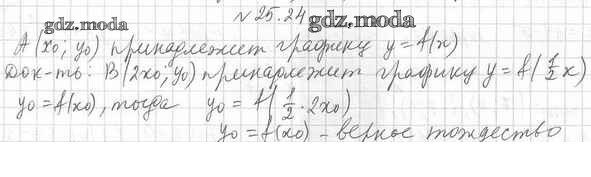 № 25.24 gdz.moda
gdz.moda
A(x₀; y₀) принадлежит графику y = f(x)
Док-ть: B(2x₀; y₀) принадлежит графику y = f(1/2 x)
y₀ = f(x₀), тогда y₀ = f(1/2 · 2x₀)
y₀ = f(x₀) – верное тождество